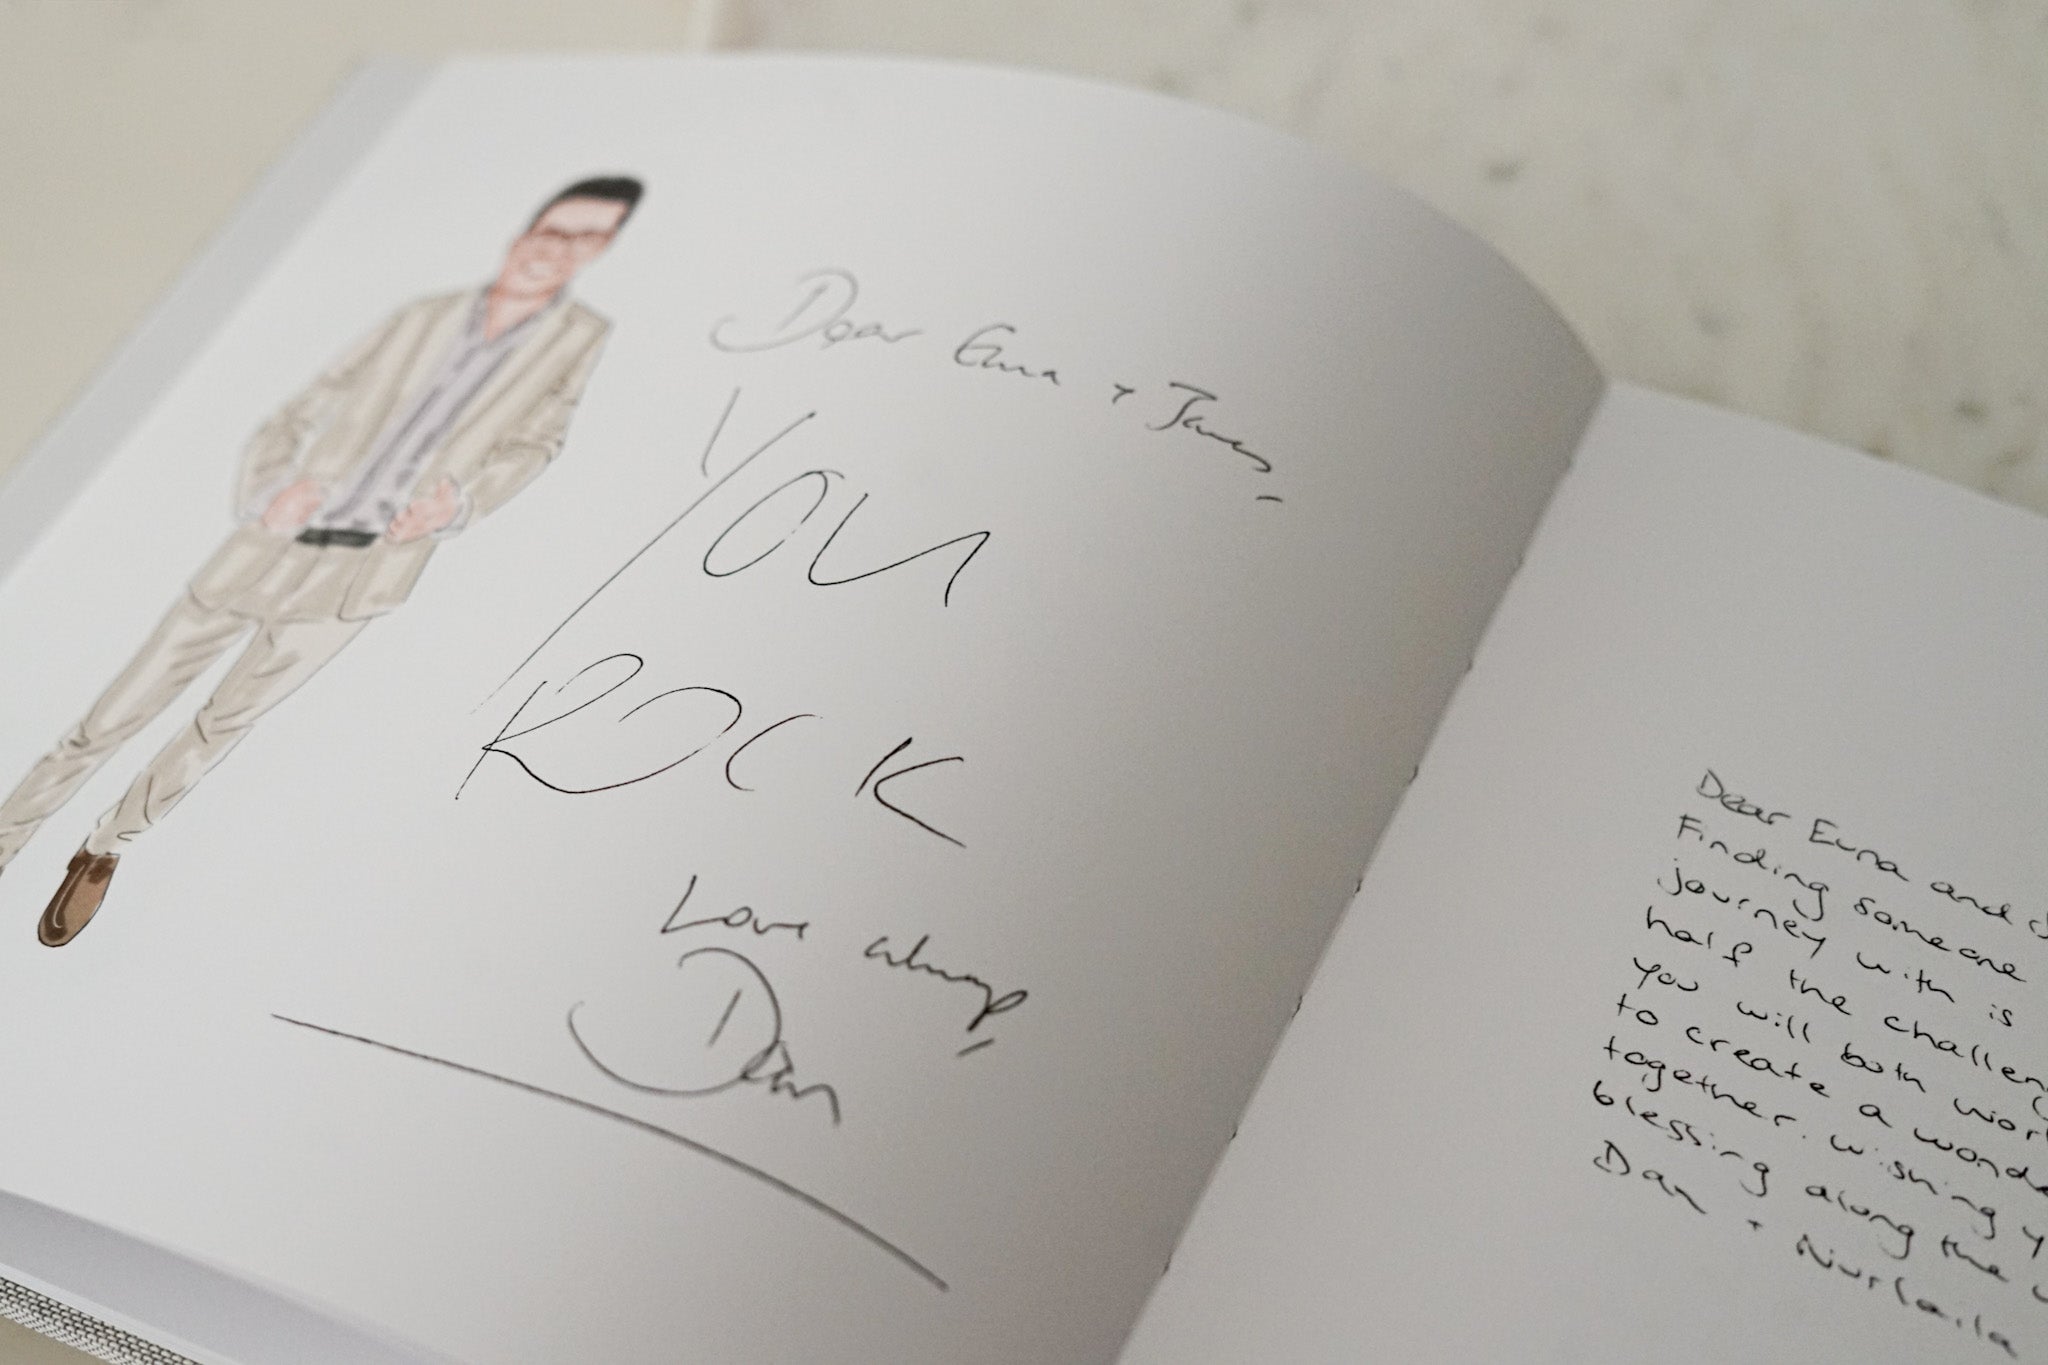 Dear Euna + James,
YOU
ROCK
Love always,
Dan
Dear Euna and
Finding someone
journey with is
half the
you will both
to create a
together. wishing
blessing along the
Dan + Nurlaila